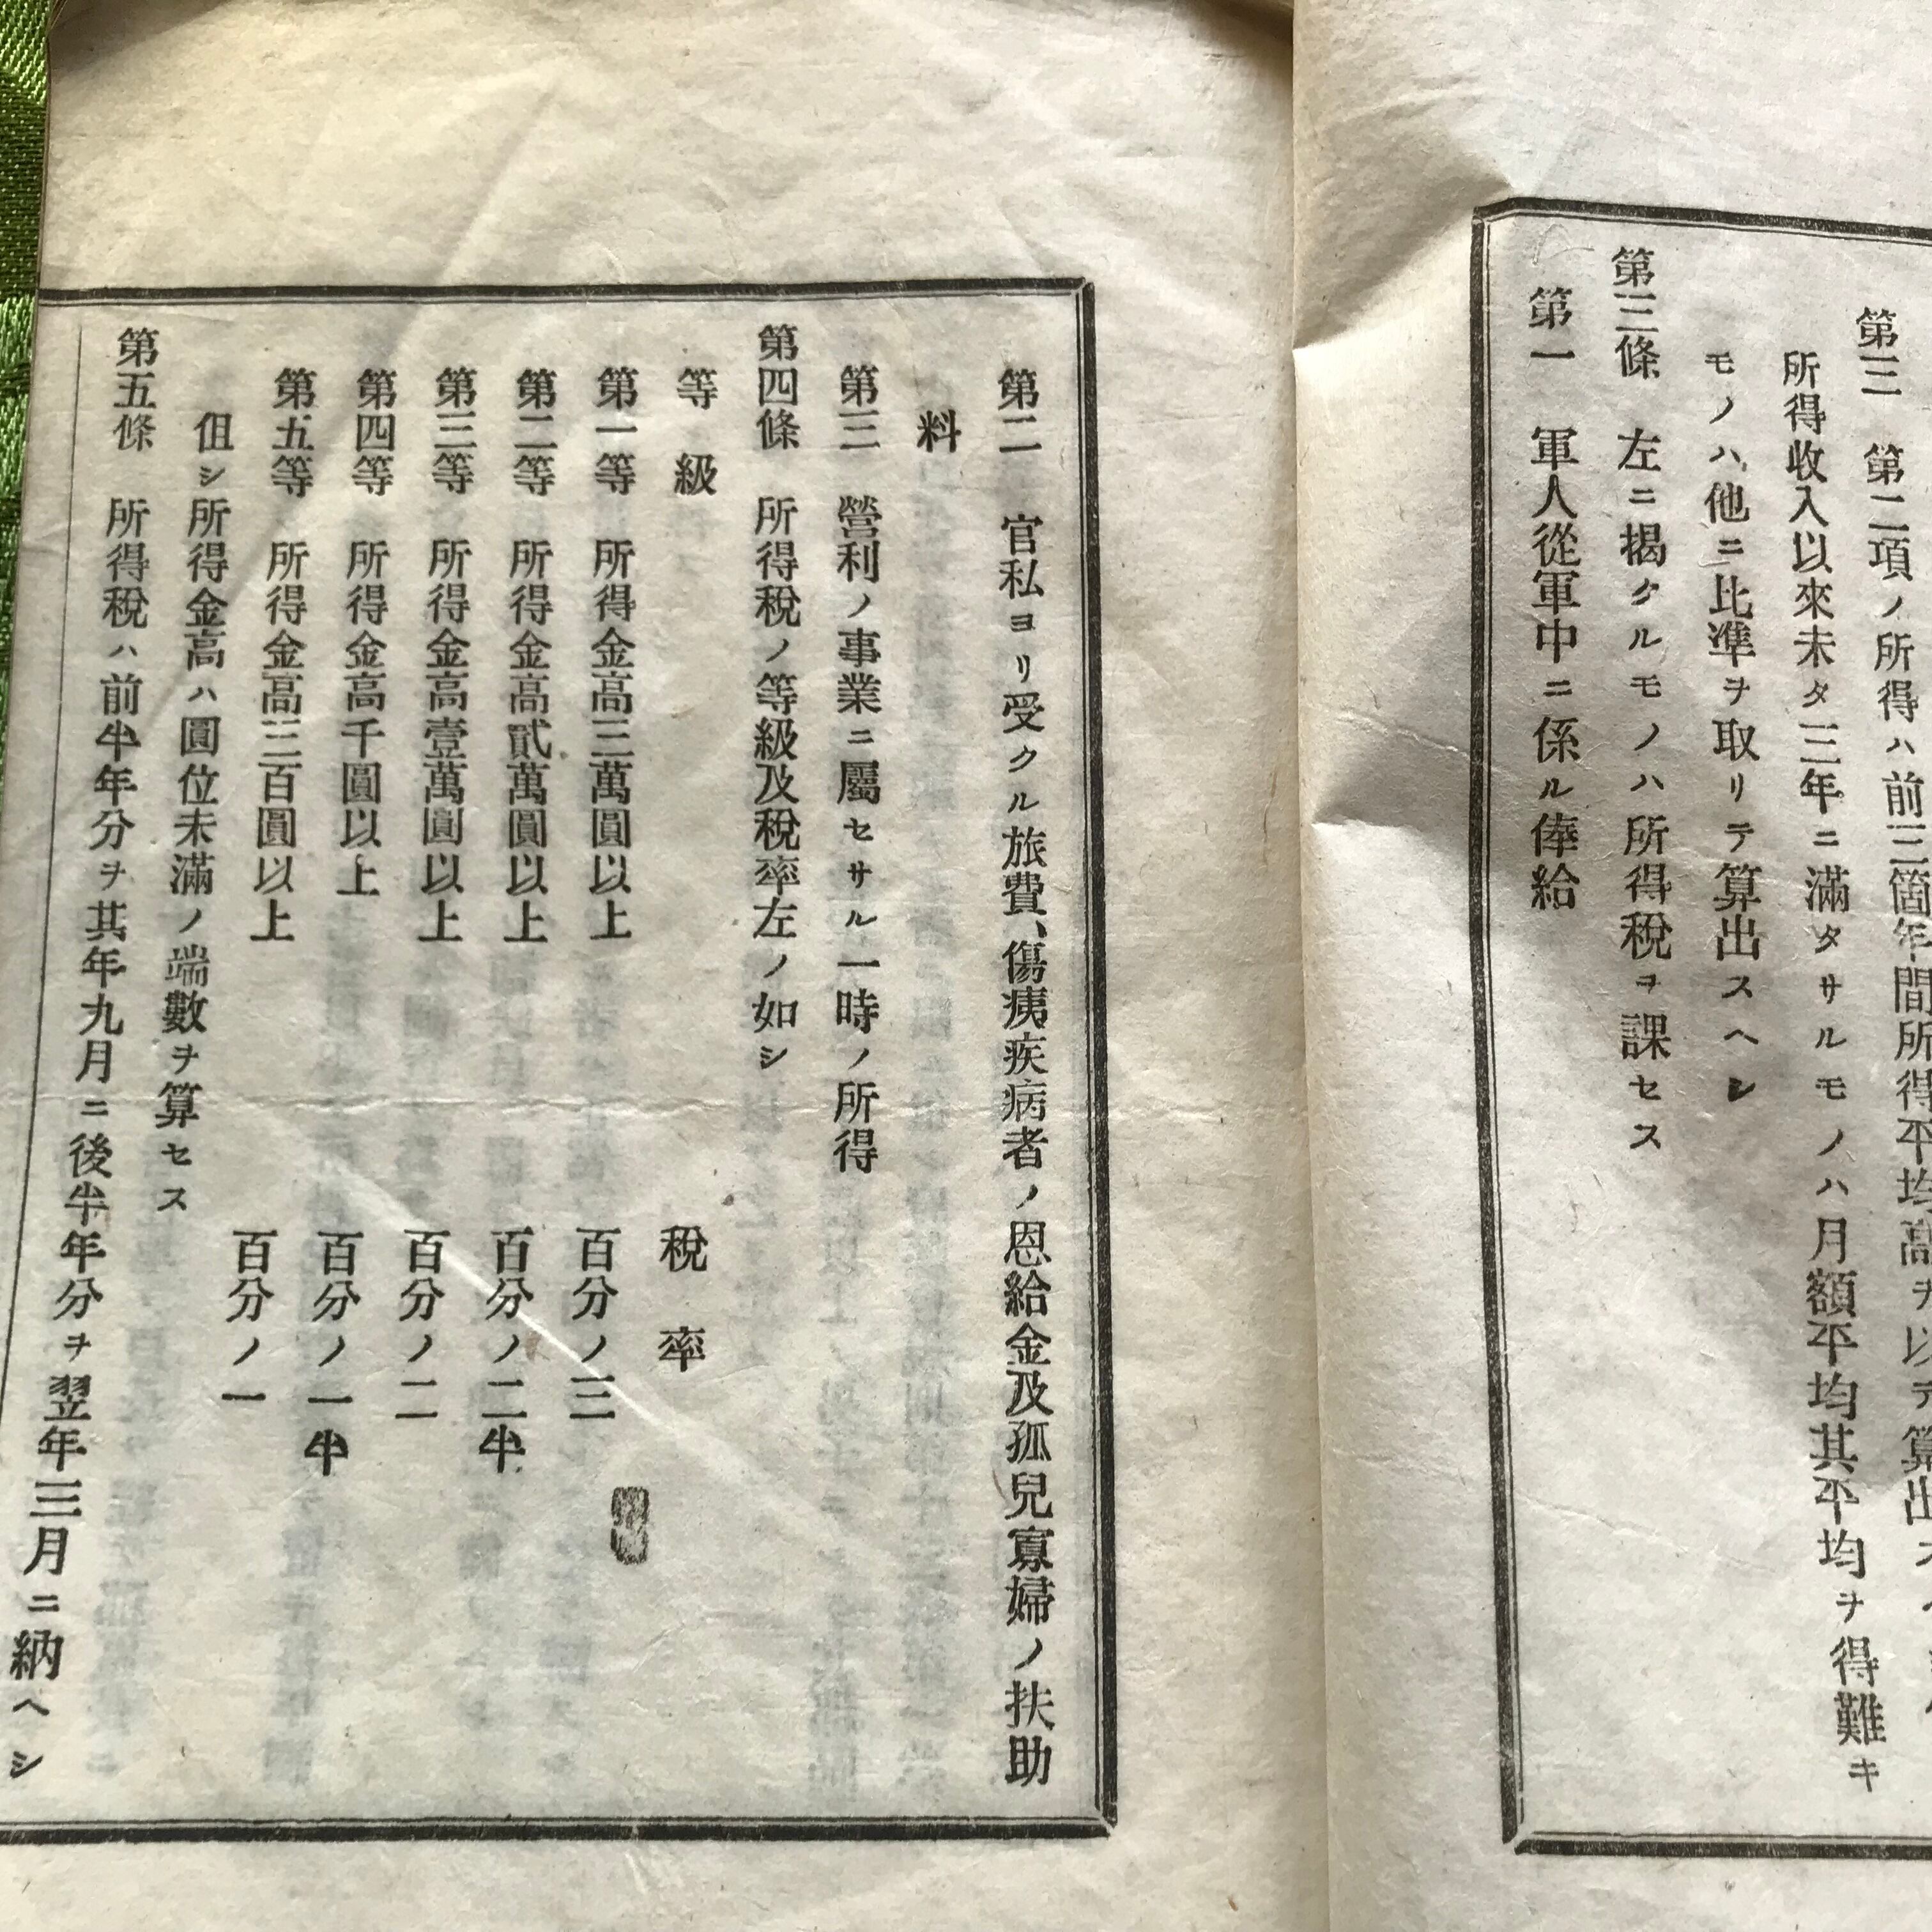 第三　第二項ノ所得ハ前三箇年間所得平均高ヲ以テ算出ス
所得收入以來未タ三年ニ滿タサルモノハ月額平均其平均ヲ得難キ
モノハ他ニ比準ヲ取リテ算出スヘシ
第三條　左ニ揭クルモノハ所得稅ヲ課セス
第一　軍人從軍中ニ係ル俸給
第二　官私ヨリ受クル旅費、傷痍疾病者ノ恩給金及孤兒寡婦ノ扶助
料
第三　營利ノ事業ニ屬セサル一時ノ所得
第四條　所得稅ノ等級及稅率左ノ如シ
等級　稅率
第一等　所得金高三萬圓以上　百分ノ三
第二等　所得金高貳萬圓以上　百分ノ二半
第三等　所得金高壹萬圓以上　百分ノ二
第四等　所得金高千圓以上　百分ノ一半
第五等　所得金高三百圓以上　百分ノ一
但シ所得金高ハ圓位未滿ノ端數ヲ算セス
第五條　所得稅ハ前半年分ヲ其年九月ニ後半年分ヲ翌年三月ニ納ヘシ